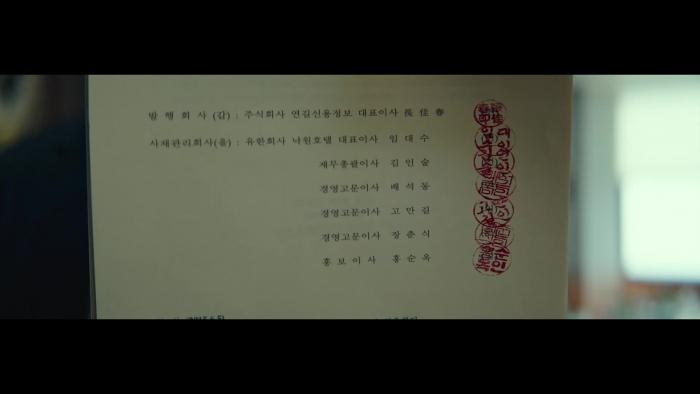 발 행 회 사 (갑) : 주식회사 연길신용정보 대표이사 長 佳 春
사채관리회사(을) : 유한회사 낙원호텔 대표이사 임 대 수
재무총괄이사 김 인 술
경영고문이사 배 석 동
경영고문이사 고 만 길
경영고문이사 장 춘 식
홍 보 이 사 홍 순 옥